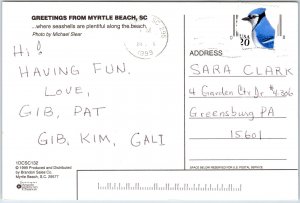 GREETINGS FROM MYRTLE BEACH, SC
...where seashells are plentiful along the beach.
Photo by Michael Slear
Hi!
HAVING FUN.
LOVE,
GIB, PAT
GIB, KIM, GALI
1DCSC132
© 1995 Produced and Distributed
by Brandon Sales Co.
Myrtle Beach, S.C. 29577
USA
20
ADDRESS
SARA CLARK
4 Garden Ctr Dr #306
Greensburg PA
15601
SPACE BELOW RESERVED FOR U.S. POSTAL SERVICE